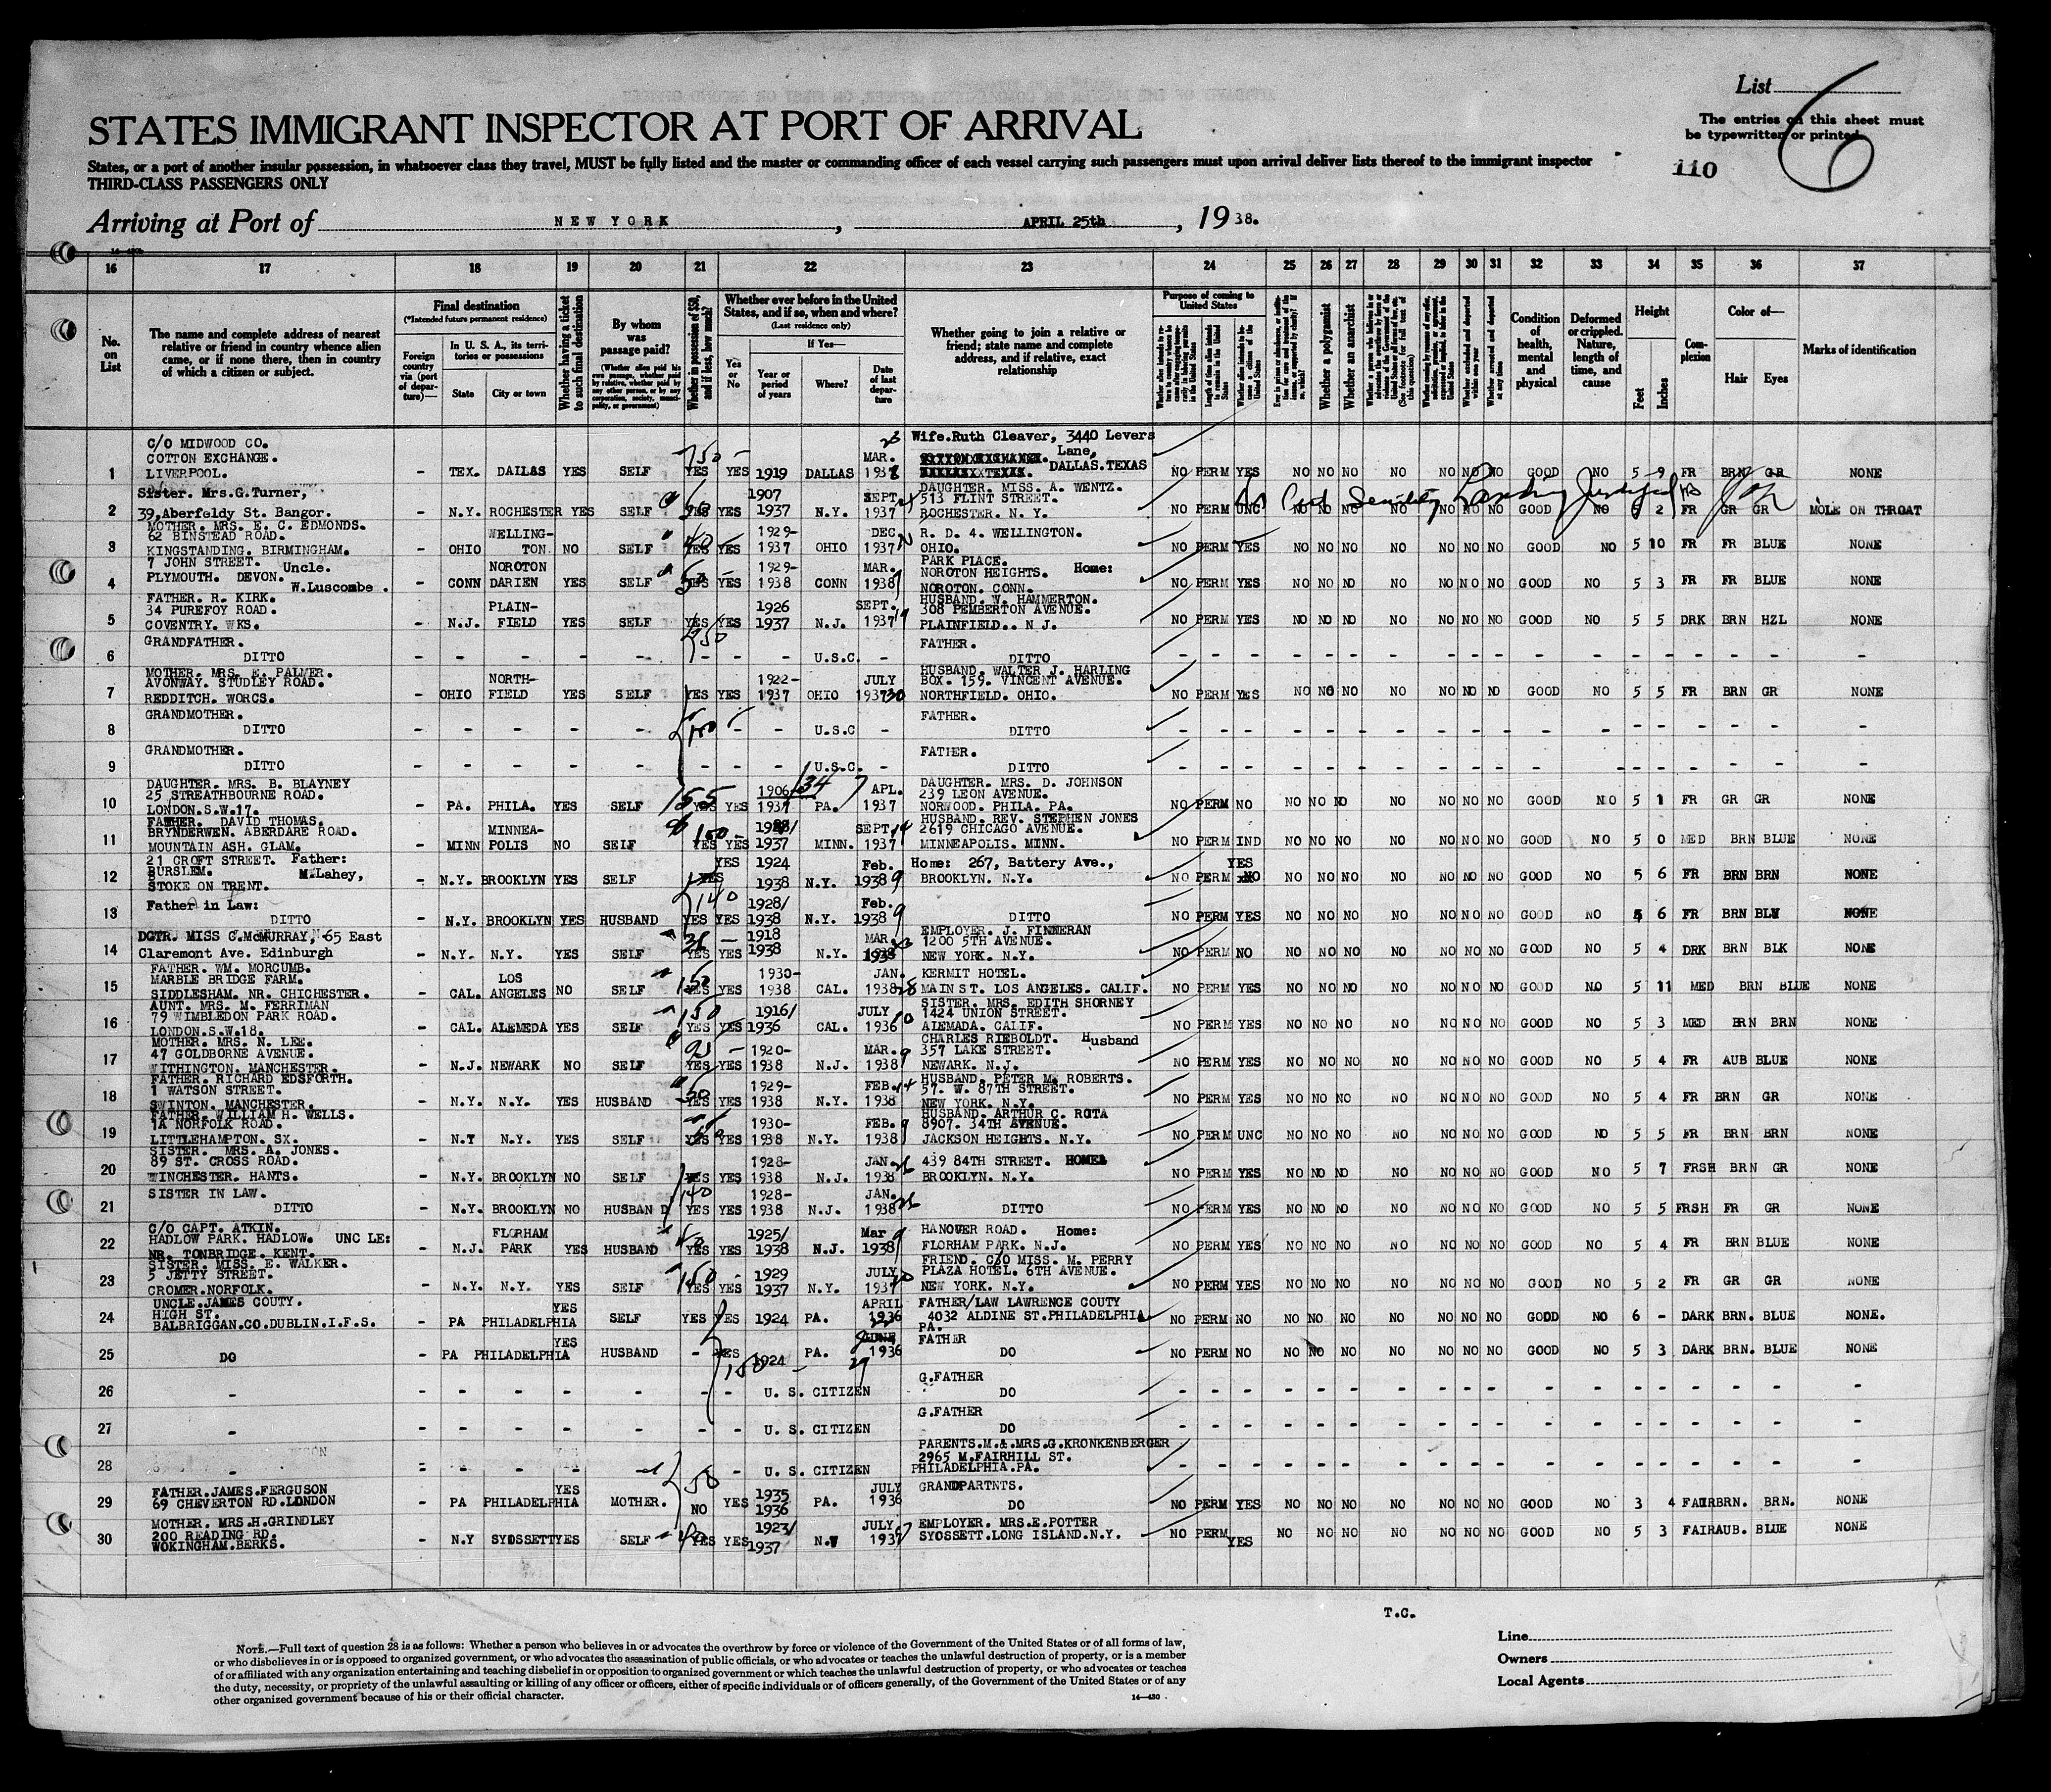 List
6
The entries on this sheet must
be typewritten or printed
110
STATES IMMIGRANT INSPECTOR AT PORT OF ARRIVAL
States, or a port of another insular possession, in whatsoever class they travel, MUST be fully listed and the master or commanding officer of each vessel carrying such passengers must upon arrival deliver lists thereof to the immigrant inspector
THIRD-CLASS PASSENGERS ONLY
Arriving at Port of NEW YORK, APRIL 25th, 1938.
16 17 18 19 20 21 22 23 24 25 26 27 28 29 30 31 32 33 34 35 36 37
No. on List
The name and complete address of nearest relative or friend in country whence alien came, or if none there, then in country of which a citizen or subject.
Final destination
(*Intended future permanent residence)
Foreign country via (port of departure)—
In U. S. A., its territories or possessions
State
City or town
Whether having a ticket to such final destination
By whom was passage paid?
(Whether alien paid his own passage, whether paid by relative, whether paid by any other person, or by any corporation, society, municipality, or government)
Whether in possession of $50, and if less, how much?
Whether ever before in the United States, and if so, when and where?
(Last residence only)
Yes or No
If Yes—
Year or period of years
Where?
Date of last departure
Whether going to join a relative or friend; state name and complete address, and if relative, exact relationship
Purpose of coming to United States
Length of time alien intends to remain in the United States
Whether alien intends to become a citizen of the United States
Whether a polygamist
Whether an anarchist
Condition of health, mental and physical
Deformed or crippled. Nature, length of time, and cause
Height
Feet
Inches
Complexion
Color of—
Hair
Eyes
Marks of identification
1 C/O MIDWOOD CO. COTTON EXCHANGE. LIVERPOOL. - TEX. DALLAS YES SELF YES YES 1919 DALLAS MAR. 23 1938 Wife.Ruth Cleaver, 3440 Levers Lane, DALLAS.TEXAS NO PERM YES NO NO NO NO NO NO NO GOOD NO 5 9 FR BRN GR NONE
2 Sister. Mrs.G.Turner, 39,Aberfeldy St. Bangor. - N.Y. ROCHESTER YES SELF 50 YES YES 1907 1937 N.Y. SEPT. 1937 DAUGHTER. MISS. A. WENTZ. 513 FLINT STREET. ROCHESTER. N. Y. NO PERM UNC NO NO NO NO NO NO NO GOOD NO 5 2 FR GR GR MOLE ON THROAT
3 MOTHER. MRS. E. C. EDMONDS. 62 BINSTEAD ROAD. KINGSTANDING. BIRMINGHAM. - OHIO WELLINGTON. NO SELF YES YES 1929-1937 OHIO DEC. 1937 R. D. 4. WELLINGTON. OHIO. NO PERM YES NO NO NO NO NO NO NO GOOD NO 5 10 FR FR BLUE NONE
4 7 JOHN STREET. Uncle. PLYMOUTH. DEVON. W.Luscombe. - CONN NOROTON DARIEN YES SELF 50 YES YES 1929-1938 CONN MAR. 1938 PARK PLACE. NOROTON HEIGHTS. Home: NOROTON. CONN. NO PERM YES NO NO NO NO NO NO NO GOOD NO 5 3 FR FR BLUE NONE
5 FATHER. R. KIRK. 34 PUREFOY ROAD. COVENTRY. WKS. - N.J. PLAIN-FIELD YES SELF YES YES 1926 1937 N.J. SEPT. 19 1937 HUSBAND. W. HAMMERTON. 308 PEMBERTON AVENUE. PLAINFIELD.. N J. NO PERM YES NO NO NO NO NO NO NO GOOD NO 5 5 DRK BRN HZL NONE
6 GRANDFATHER. DITTO - - - - - - - - U.S.C. - FATHER. DITTO
7 MOTHER. MRS. E. PALMER. AVONWAY. STUDLEY ROAD. REDDITCH. WORCS. - OHIO NORTH-FIELD YES SELF YES YES 1922-1937 OHIO JULY 30 1937 HUSBAND. WALTER J. HARLING BOX. 159. VINCENT AVENUE. NORTHFIELD. OHIO. NO PERM YES NO NO NO NO NO NO NO GOOD NO 5 5 FR BRN GR NONE
8 GRANDMOTHER. DITTO - - - - - - - - U.S.C - FATHER. DITTO
9 GRANDMOTHER. DITTO - - - - - - - - U.S.C. - FATHER. DITTO
10 DAUGHTER. MRS. B. BLAYNEY 25 STREATHBOURNE ROAD. LONDON.S.W.17. - PA. PHILA. YES SELF 155 YES YES 1906 1937 /34 PA. APL. 7 1937 DAUGHTER. MRS. D. JOHNSON 239 LEON AVENUE. NORWOOD. PHILA. PA. NO PERM NO NO NO NO NO NO NO NO GOOD NO 5 1 FR GR GR NONE
11 FATHER. DAVID THOMAS. BRYNDERWEN. ABERDARE ROAD. MOUNTAIN ASH. GLAM. - MINN MINNEA-POLIS NO SELF 150 YES YES 1937 MINN. SEPT 14 1937 HUSBAND. REV. STEPHEN JONES 2619 CHICAGO AVENUE. MINNEAPOLIS. MINN. NO PERM IND NO NO NO NO NO NO NO GOOD NO 5 0 MED BRN BLUE NONE
12 21 CROFT STREET. Father: BURSLEM. M.Lahey, STOKE ON TRENT. - N.Y. BROOKLYN YES SELF YES YES 1924 1938 N.Y. Feb. 9 1938 Home: 267, Battery Ave., BROOKLYN. N.Y. NO PERM YES NO NO NO NO NO NO NO GOOD NO 5 6 FR BRN BRN NONE
13 Father in Law: DITTO - N.Y. BROOKLYN YES HUSBAND 140 YES YES 1928/ 1938 N.Y. Feb. 9 1938 DITTO NO PERM YES NO NO NO NO NO NO NO GOOD NO 5 6 FR BRN BLU NONE
14 DGTR. MISS C.McMURRAY, 65 East Claremont Ave. Edinburgh - N.Y. N.Y. YES SELF YES YES 1918 1938 N.Y. MAR 1938 EMPLOYER. J. FINNERAN 1200 5TH AVENUE. NEW YORK. N.Y. NO PERM NO NO NO NO NO NO NO NO GOOD NO 5 4 DRK BRN BLK NONE
15 FATHER. WM. MORCUMB. MARBLE BRIDGE FARM. SIDDLESHAM. NR. CHICHESTER. - CAL. LOS ANGELES NO SELF 150 YES YES 1930-1938 CAL. JAN. 28 1938 KERMIT HOTEL. MAIN ST. LOS ANGELES. CALIF. NO PERM YES NO NO NO NO NO NO NO GOOD NO 5 11 MED BRN BLUE NONE
16 AUNT. MRS. M. FERRIMAN 79 WIMBLEDON PARK ROAD. LONDON.S.W.18. - CAL. ALEMEDA YES SELF 150 YES YES 1916/ 1936 CAL. JULY 10 1936 SISTER. MRS. EDITH SHORNEY 1424 UNION STREET. ALEMADA. CALIF. NO PERM YES NO NO NO NO NO NO NO GOOD NO 5 3 MED BRN BRN NONE
17 MOTHER. MRS. N. LEE. 47 GOLDBORNE AVENUE. WITHINGTON. MANCHESTER. - N.J. NEWARK NO SELF YES YES 1920-1938 N.J. MAR. 9 1938 CHARLES RIEBOLDT. Husband 357 LAKE STREET. NEWARK. N.J. NO PERM YES NO NO NO NO NO NO NO GOOD NO 5 4 FR AUB BLUE NONE
18 FATHER. RICHARD EDSFORTH. 1 WATSON STREET. SWINTON. MANCHESTER. - N.Y. N.Y. YES HUSBAND 50 YES YES 1929-1938 N.Y. FEB. 14 1938 HUSBAND. PETER M. ROBERTS. 57. W. 87TH STREET. NEW YORK. N.Y. NO PERM YES NO NO NO NO NO NO NO GOOD NO 5 4 FR BRN GR NONE
19 FATHER. WILLIAM H. WELLS. 1A NORFOLK ROAD. LITTLEHAMPTON. SX. - N.Y N.Y. YES SELF YES YES 1930-1938 N.Y. FEB. 9 1938 HUSBAND. ARTHUR C. ROTA 8907. 34TH AVENUE. JACKSON HEIGHTS. N.Y. NO PERM UNC NO NO NO NO NO NO NO GOOD NO 5 5 FR BRN BRN NONE
20 SISTER. MRS. A. JONES. 89 ST. CROSS ROAD. WINCHESTER. HANTS. - N.Y. BROOKLYN NO SELF YES YES 1928-1938 N.J. JAN. 26 1938 439 84TH STREET. HOME BROOKLYN. N.Y. NO PERM YES NO NO NO NO NO NO NO GOOD NO 5 7 FRSH BRN GR NONE
21 SISTER IN LAW. DITTO - N.Y. BROOKLYN NO HUSBAND 140 YES YES 1928-1938 N.J. JAN. 26 1938 DITTO NO PERM YES NO NO NO NO NO NO NO GOOD NO 5 5 FRSH FR GR NONE
22 C/O CAPT. ATKIN. HADLOW PARK. HADLOW. UNCLE: NR. TONBRIDGE. KENT. - N.J. FLORHAM PARK YES HUSBAND YES YES 1925/ 1938 N.J. Mar 9 1938 HANOVER ROAD. Home: FLORHAM PARK. N.J. NO PERM YES NO NO NO NO NO NO NO GOOD NO 5 4 FR BRN BLUE NONE
23 SISTER. MISS. E. WALKER. 5 JETTY STREET. CROMER.NORFOLK. - N.Y. N.Y. YES SELF 150 YES YES 1929 1937 N.Y. JULY 20 1937 FRIEND. C/O MISS. M. PERRY PLAZA HOTEL. 6TH AVENUE. NEW YORK. N.Y. NO PERM YES NO NO NO NO NO NO NO GOOD NO 5 2 FR GR GR NONE
24 UNCLE.JAMES COUTY. HIGH ST. BALBRIGGAN.CO.DUBLIN.I.F.S. - PA PHILADELPHIA YES SELF YES YES 1924 PA. APRIL 1936 FATHER/LAW LAWRENCE COUTY 4032 ALDINE ST.PHILADELPHIA PA. NO PERM NO NO NO NO NO NO NO NO GOOD NO 6 - DARK BRN. BLUE NONE.
25 DO - PA PHILADELPHIA YES HUSBAND - YES 1924 150 PA. JUNE 29 1936 FATHER DO NO PERM NO NO NO NO NO NO NO NO GOOD NO 5 3 DARK BRN. BLUE NONE
26 - - - - - - - - U. S. CITIZEN G.FATHER DO
27 - - - - - - - - U. S. CITIZEN G.FATHER DO
28 - - - - - - - U. S. CITIZEN PARENTS.M.&.MRS.G.KRONKENBERGER 2965 M.FAIRHILL ST. PHILADELPHIA.PA.
29 FATHER.JAMES.FERGUSON 69 CHEVERTON RD.LONDON - PA PHILADELPHIA YES MOTHER. 50 NO YES 1935 1936 PA. JULY 1936 GRANDPARTNTS. DO NO PERM YES NO NO NO NO NO NO NO GOOD NO 3 4 FAIR BRN. BRN. NONE
30 MOTHER. MRS.H.GRINDLEY 200 READING RD. WOKINGHAM.BERKS. - N.Y SYOSSETT YES SELF YES YES 1923/ 1937 N.Y JULY 1937 EMPLOYER. MRS.E.POTTER SYOSSETT.LONG ISLAND.N.Y. NO PERM YES NO NO NO NO NO NO NO GOOD NO 5 3 FAIR AUB. BLUE NONE
T.C.
NOTE.—Full text of question 28 is as follows: Whether a person who believes in or advocates the overthrow by force or violence of the Government of the United States or of all forms of law,
or who disbelieves in or is opposed to organized government, or who advocates the assassination of public officials, or who advocates or teaches the unlawful destruction of property, or is a member
of or affiliated with any organization entertaining and teaching disbelief in or opposition to organized government or which teaches the unlawful destruction of property, or who advocates or teaches
the duty, necessity, or propriety of the unlawful assaulting or killing of any officer or officers, either of specific individuals or of officers generally, of the Government of the United States or of any
other organized government because of his or their official character.
14—430
Line
Owners
Local Agents